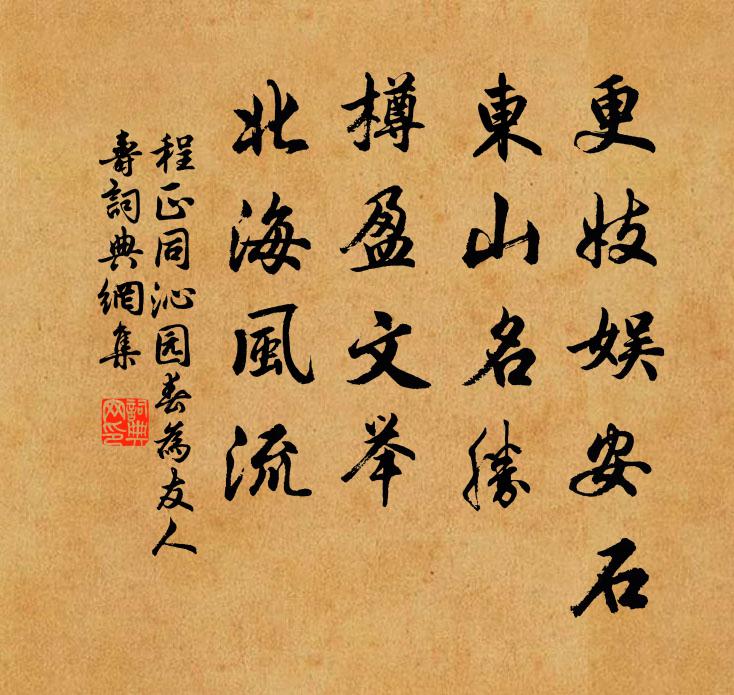 更妓娱安石
東山名勝
樽盈文举
北海風流
程正同沁园春為友人
壽詞典網集
詞典
网印